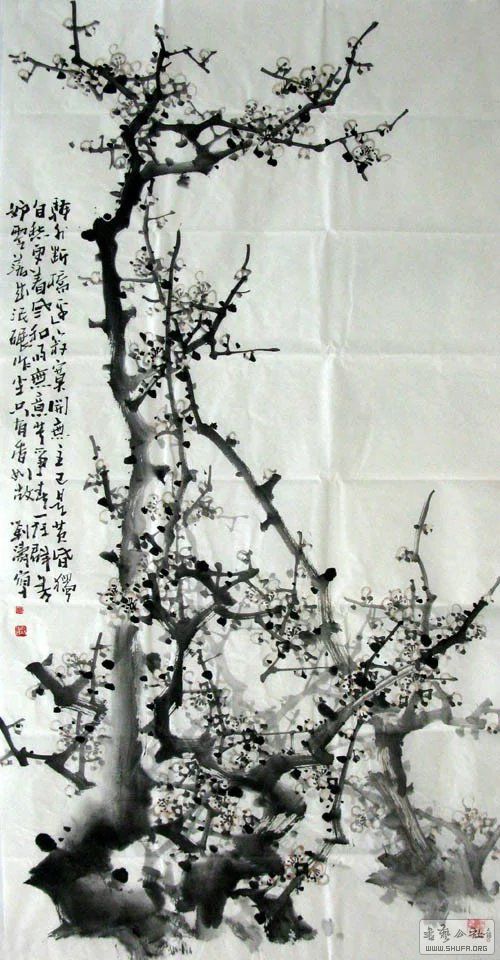 驿外断橋边寂寞開無主已是黄昏獨
自愁更着風和雨無意苦爭春一任群芳
妒零落成泥碾作尘只有香如故
書藝公社
WWW.SHUFA.ORG